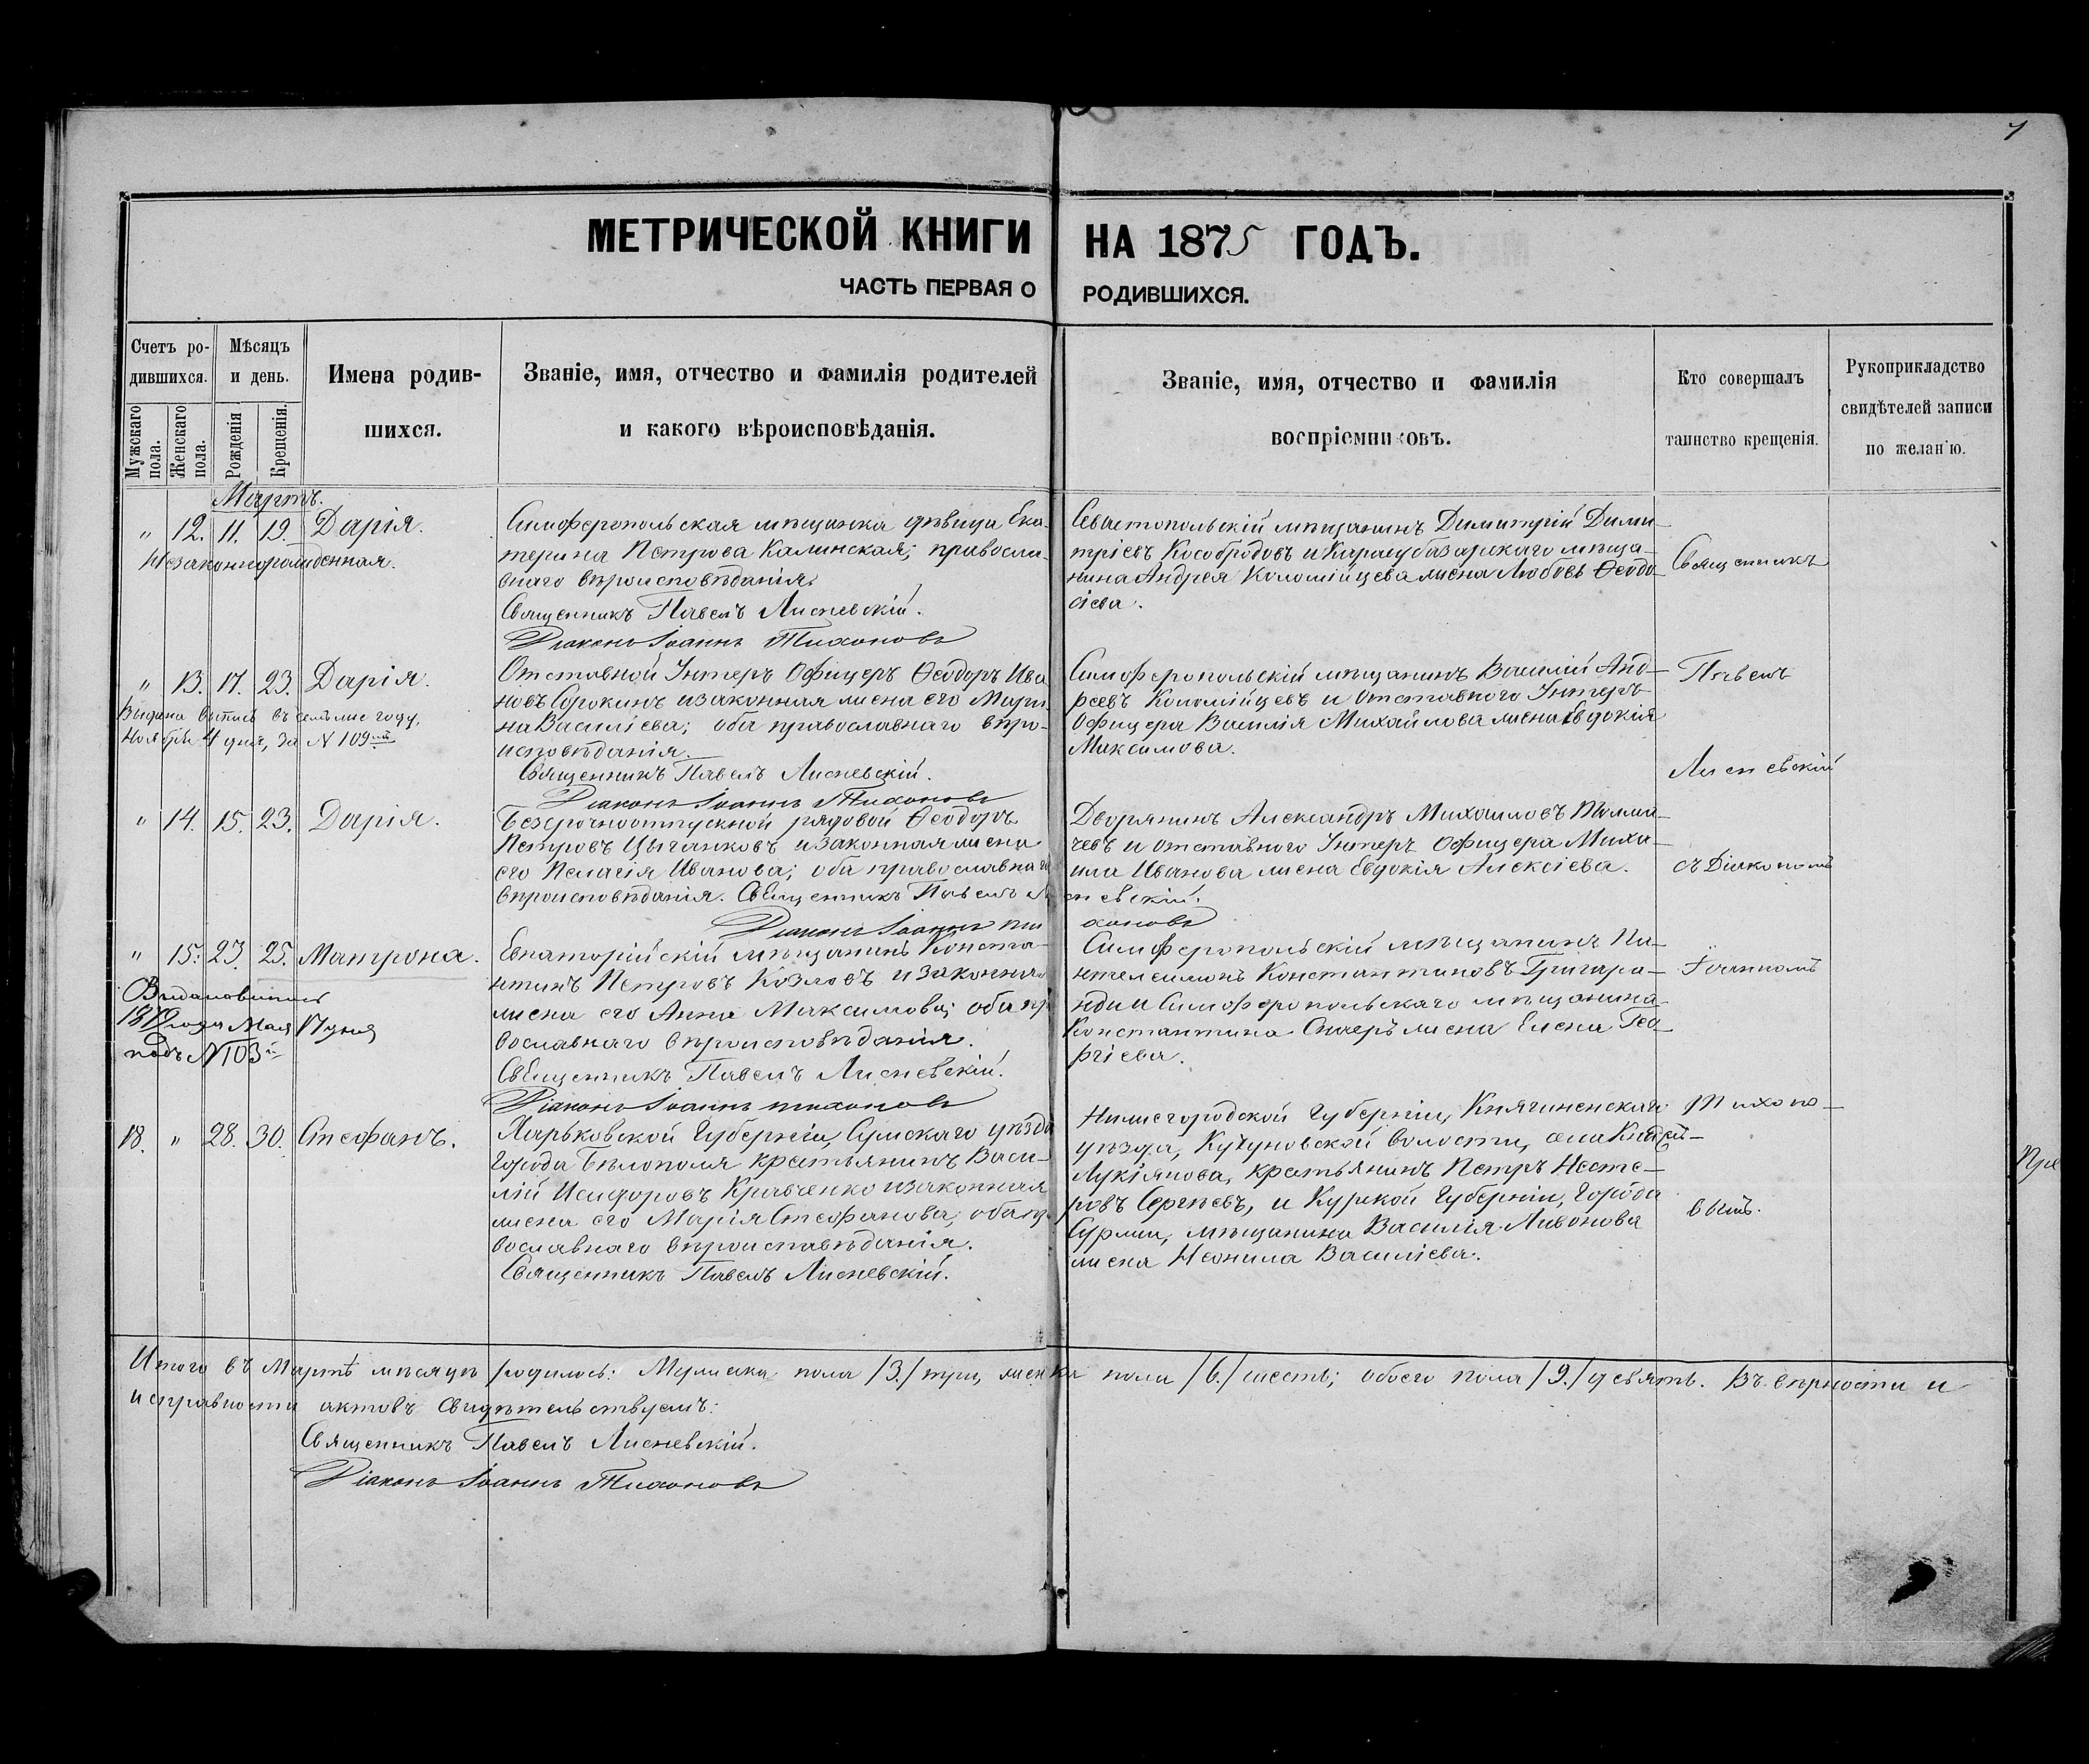 7
МЕТРИЧЕСКОЙ КНИГИ НА 1875 ГОДЪ.
ЧАСТЬ ПЕРВАЯ О РОДИВШИХСЯ.
Счетъ ро-
дившихся.
Мужскаго пола.
Женскаго пола.
Мѣсяцъ
и день.
Рожденія
Крещенія.
Имена родив-
шихся.
Званіе, имя, отчество и фамилія родителей
и какого вѣроисповѣданія.
Званіе, имя, отчество и фамилія
воспріемниковъ.
Кто совершалъ
таинство крещенія.
Рукоприкладство
свидѣтелей записи
по желанію.
Мартъ.
„ 12. 11. 19. Дарія.
Незаконнорожденная.
Симферопольская мѣщанка дѣвица Ека-
терина Петрова Калинская; правосла-
внаго вѣроисповѣданія.
Священникъ Павелъ Лисневскій.
Діаконъ Іоаннъ Тихоновъ
Севастопольскій мѣщанинъ Димитрій Дими-
тріевъ Кособродовъ и Карасубазарскаго мѣща-
нина Андрея Коломійцева жена Любовь Ѳеодо-
сіева.
Священникъ
„ 13. 17. 23. Дарія.
Выдана выпись съ семъ же году,
Ноября 4 дня, за N 109ий
Отставной Унтеръ Офицеръ Ѳеодоръ Ива
новъ Сорокинъ и законная жена его Мари-
на Василіева; оба православнаго вѣро-
исповѣданія.
Священникъ Павелъ Лисневскій.
Діаконъ Іоаннъ Тихоновъ
Симферопольскій мѣщанинъ Василій Анд-
реевъ Коломійцевъ и Отставного Унтеръ
Офицера Василія Михайлова жена Евдокія
Максимова.
Павелъ
Лисневскій
„ 14. 15. 23. Дарія.
Безсрочноотпускной рядовой Ѳеодоръ
Петровъ Цыганковъ и законная жена
его Пелагія Иванова; оба православнаго
вѣроисповѣданія. Священникъ Павелъ Лисневскій.
Діаконъ Іоаннъ Тихоновъ
Дворянинъ Александръ Михаиловъ
чевъ и отставного Унтеръ Офицера Миха-
ила Иванова жена Евдокія Алексіева.
съ Діакономъ
„ 15. 23. 25. Матрона.
Выдано выпись
года Мая 17 дня
подъ N 103
Евпаторійскій мѣщанинъ Конста-
нтинъ Петровъ Козловъ и законная
жена его Анна Максимова; оба пр
вославнаго вѣроисповѣданія.
Священникъ Павелъ Лисневскій.
Діаконъ Іоаннъ тихоновъ
Симферопольскій мѣщанинъ Па-
нтелеимонъ Константиновъ Григора-
нди и Симферопольскаго мѣщанина
Константина жена Елена Гео-
ргіева.
Іоанномъ
18. „ 28. 30. Стефанъ.
Харьковской Губерніи, Сумскаго уѣзда
города Бѣлополя крестьянинъ Васи-
лій Исидоровъ Кравченко и законная
жена его Марія Стефанова; оба пр
вославнаго вѣроисповѣданія.
Священникъ Павелъ Лисневскій.
Нижегородской Губерніи, Княгиненскаго
уѣзда, волости, села
Лукіянова, крестьянинъ Петръ Несте-
ровъ Сергѣевъ, и Курской Губерніи, города
мѣщанина Василія Ливонова
жена Неонила Василіева.
Тихоно-
вымъ.
Пре
Итого въ Мартѣ мѣсяцѣ родилось: Мужеска пола /3./ три, женска пола /6./ шесть; обоего пола /9./ девять. Въ вѣрности и
исправности актовъ свидѣтельствуемъ:
Священникъ Павелъ Лисневскій.
Діаконъ Іоаннъ Тихоновъ